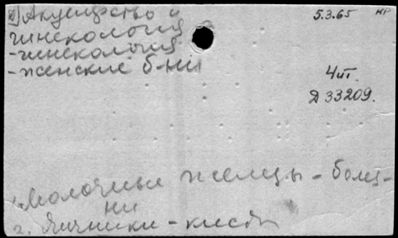 Акушерство и
гинекология
-гинекология
-женские б-ни
5.3.65
НР
4 шт.
Д 33209.
Молочные железы - болез-
ни
2. Яичники - кисты